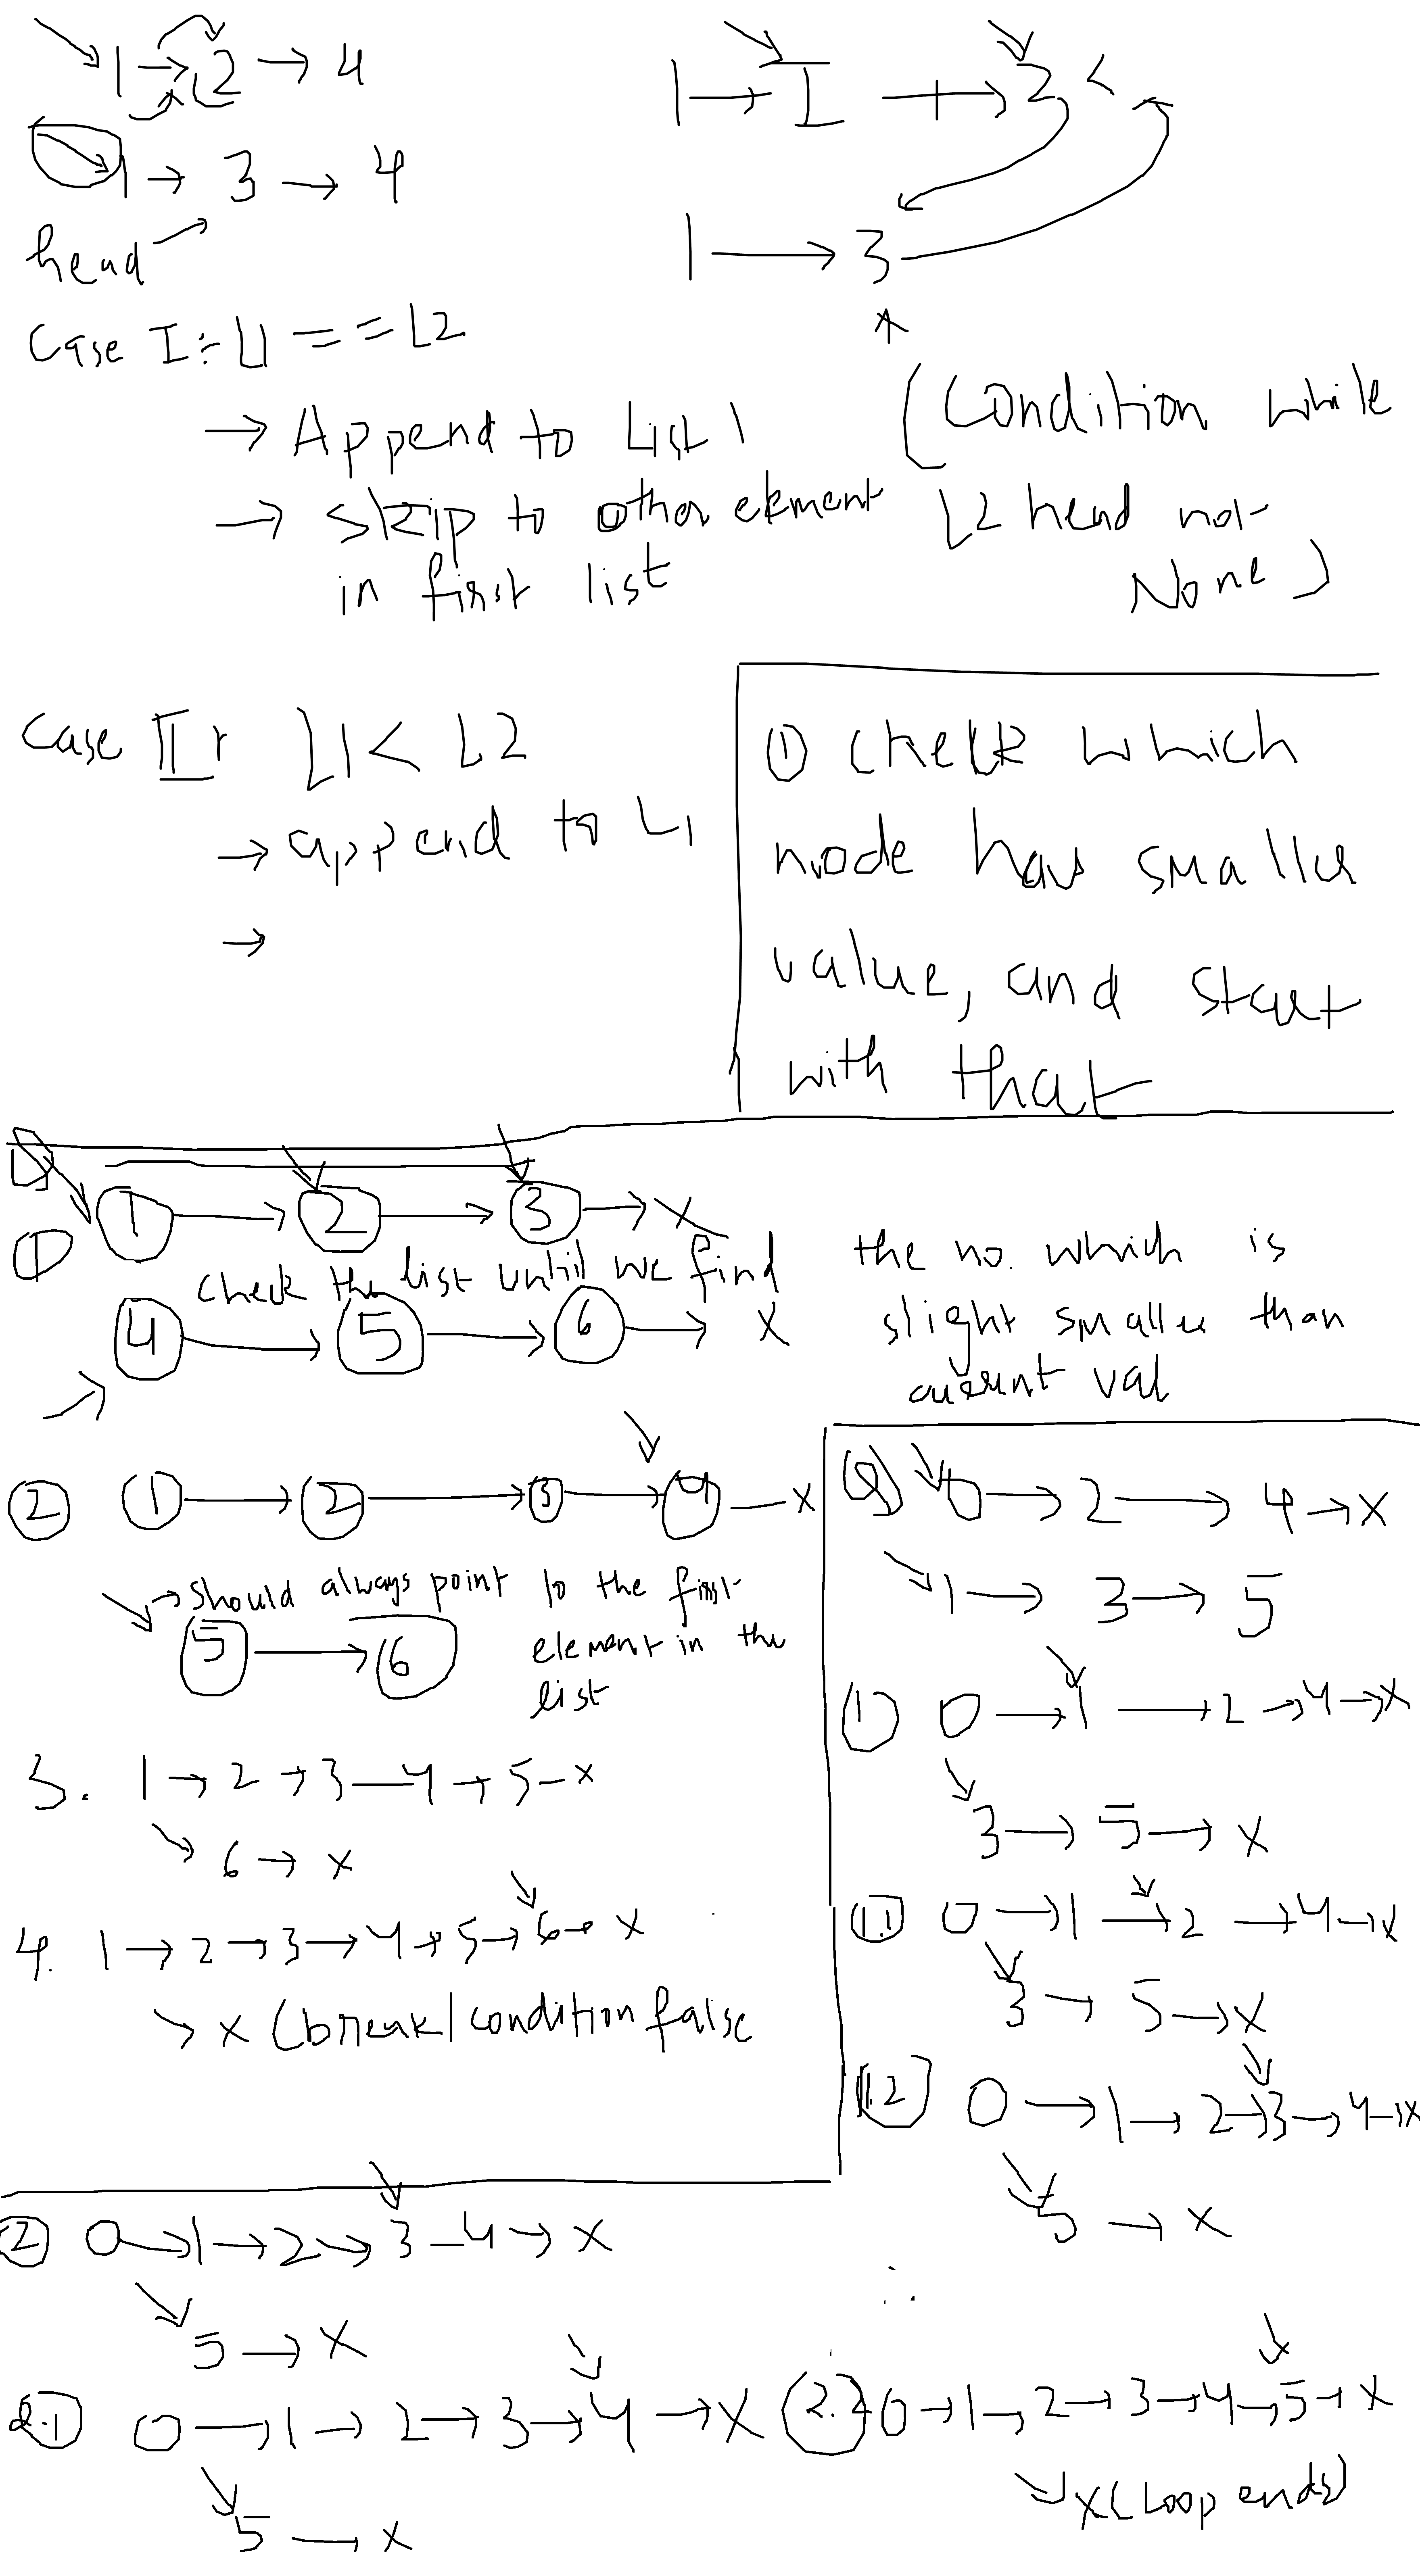 1 → 2 → 4
1 → 3 → 4
head
1 → 1 → 2 <
1 → 3
Case I: L1 == L2
→ Append to List 1
→ Skip to other element
in first list
(Condition while
L2 head not
None)
Case II: L1 < L2
→ append to L1
→
① Check which
node has smaller
value, and start
with that
① 1 → 2 → 3 → x
check the list until we find
the no. which is
slight smaller than
current val
4 → 5 → 6 → x
② 1 → 2 → 3 → 4 — x
→ should always point to the first
element in the
list
5 → 6
3. 1 → 2 → 3 — 4 → 5 – x
6 → x
4. 1 → 2 → 3 → 4 → 5 → 6 → x
x (break/condition false
0 → 2 → 4 → x
1 → 3 → 5
① 0 → 1 → 2 → 4 → x
3 → 5 → x
1.1 0 → 1 → 2 → 4 → x
3 → 5 → x
1.2 0 → 1 → 2 → 3 → 4 → x
5 → x
② 0 → 1 → 2 → 3 – 4 → x
5 → x
2.1 0 → 1 → 2 → 3 → 4 → x
5 → x
2.2 0 → 1 → 2 → 3 → 4 → 5 → x
x (Loop ends)